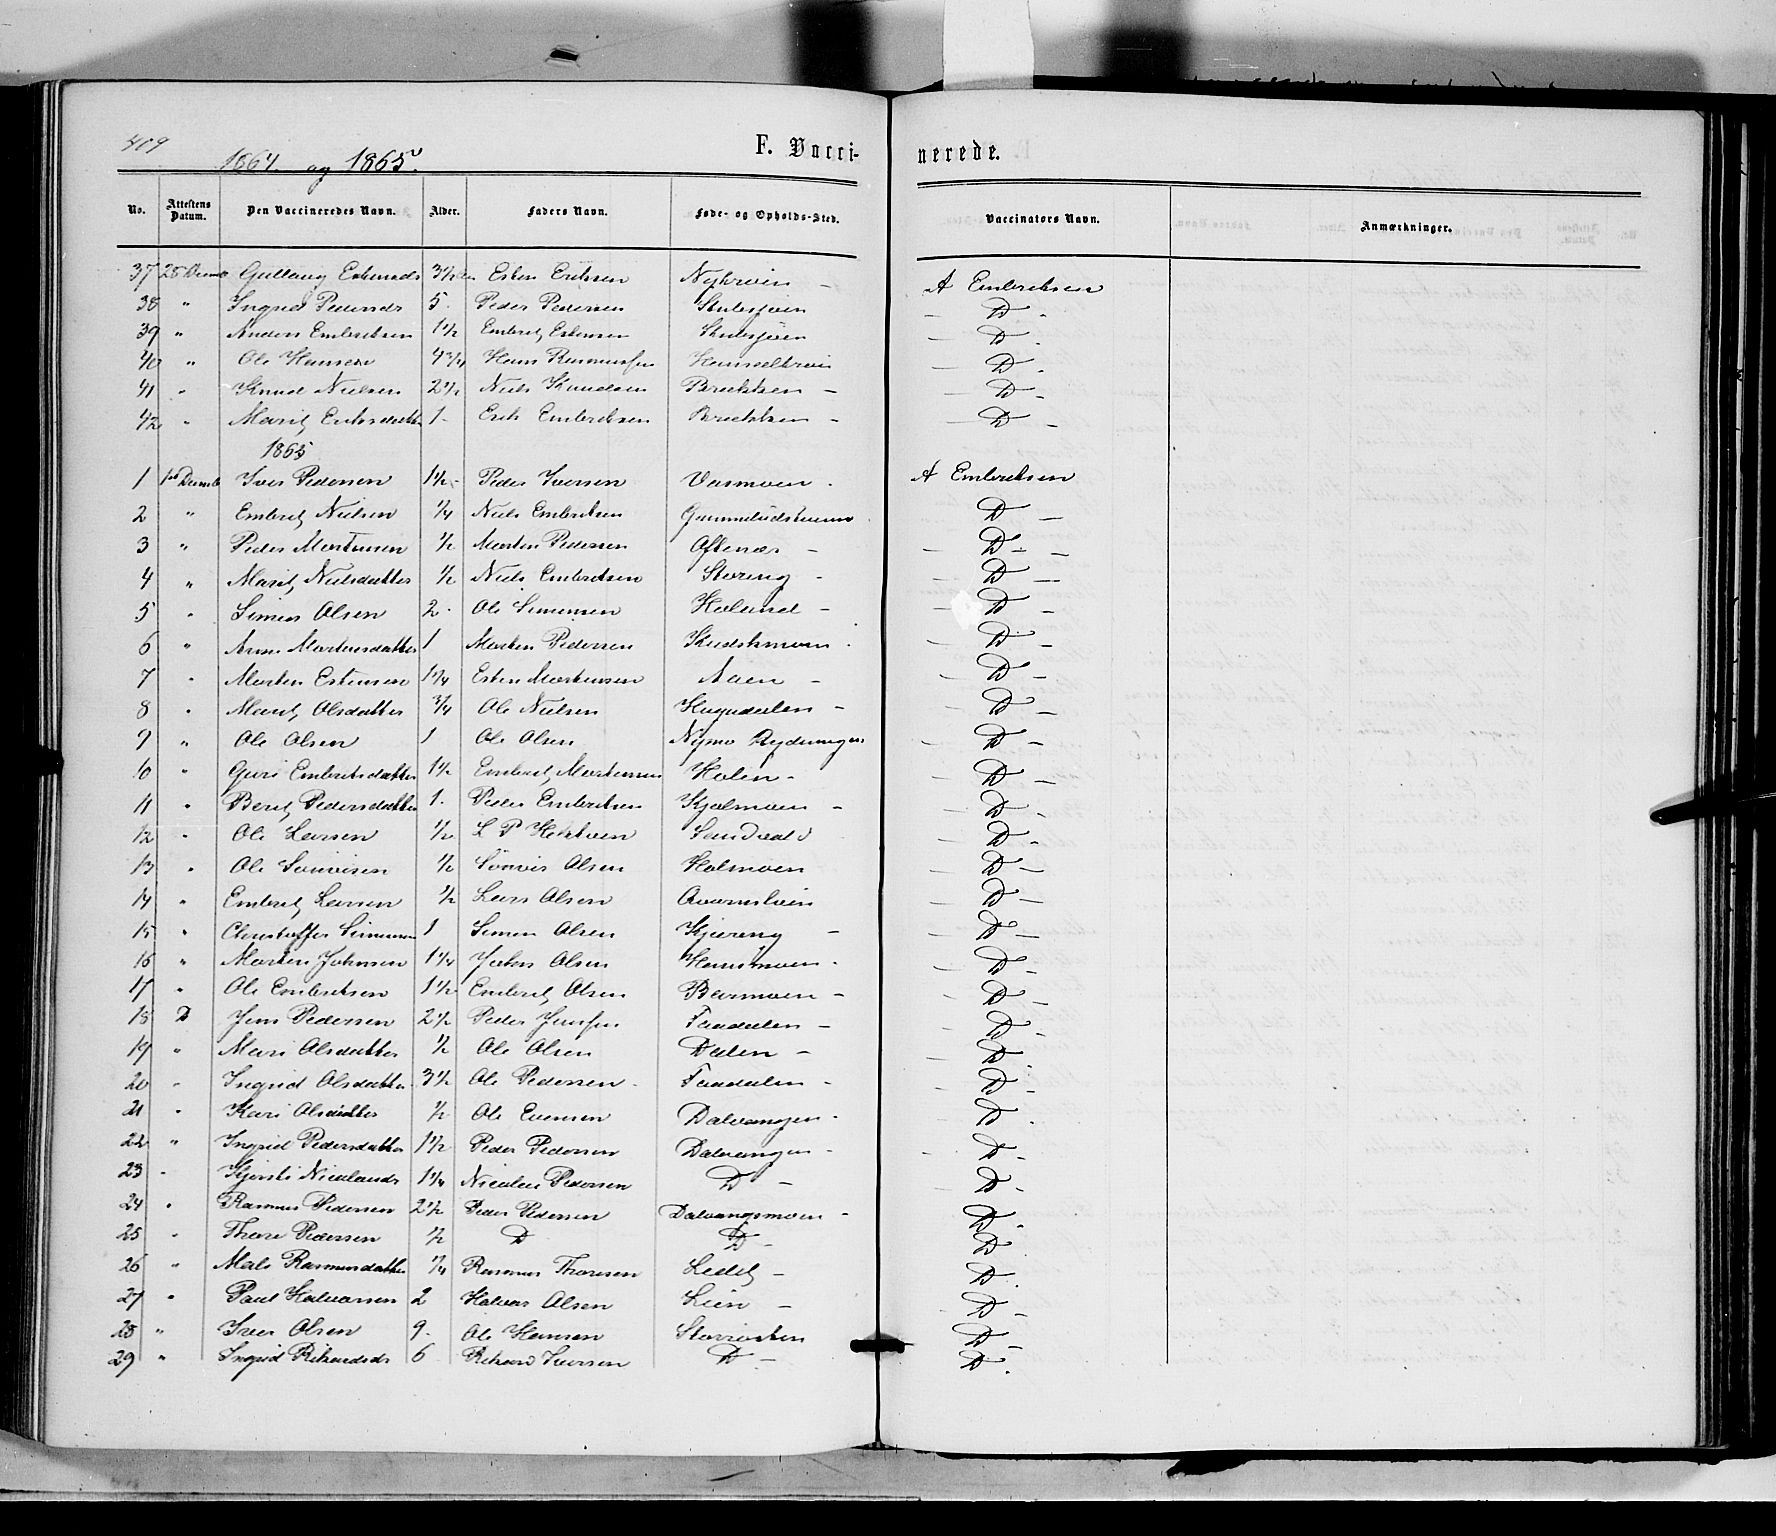 409
1864. og 1865.
F. Vaccinerede.
No. Attestens Datum. Den Vaccineredes Navn. Alder. Faders Navn. Føde- og Opholds-Sted. Vaccinators Navn. Anmærkninger.
37 28 Decemb Gullaug Estensdr 3 1/2 Esten Eriksen Nykroen - A Embretsen
38 " Ingrid Pedersdr 5 - Peder Pedersen Stubsjøen - D -
39 " Anders Embretsen 1 1/2 Embret Estensen Stubsjøen - D -
40 " Ole Hansen 4 3/4 Hans Rasmussen - D -
41 " Knud Nielsen 2 1/2 Niels Knudsen Brekken - - D -
42 " Marit Eriksdatter 1 - Erik Embretsen Brekken - - D -
1865
1 1st Decemb Iver Pedersen 1 1/2 - Peder Iversen Vasmoen - A Embretsen
2 " Embret Nielsen 1/4 Niels Embretsen D -
3 " Peder Mortensen 1/2 Morten Pedersen - - D - -
4 " Marit Nielsdatter 1/2 Niels Embretsen Støreng - - D -
5 " Simen Olsen 2 - Ole Simensen - - D -
6 " Anne Mortensdatter 1 Morten Pedersen - D -
7 " Morten Estensen 1 1/4 Esten Mortensen Aaen - - D -
8 " Marit Olsdatter 3/4 Ole Nielsen - - D -
9 " Ole Olsen 1 Ole Olsen Nymo - D -
10 " Guri Embretsdatter 1 1/2 Embret Mortensen Holen - - D -
11 " Berit Pedersdatter 1 - Peder Embretsen Kjølmoen - - D -
12 " Ole Larsen 1/2 L P Sandvold - D -
13 " Ole 1/2 Olsen Holmoen - D -
14 " Embret Larsen 1/2 Lars Olsen - D -
15 " Christoffer Simensen 1 Simen Olsen Kjæreng - - D -
16 " Morten Johnsen 1 1/4 Olsen Hansmoen - - D -
17 " Ole Embretsen 1 1/2 Embret Olsen - - D -
18 D Jens Pedersen 2 1/2 Peder Jensen Faadalen - - D -
19 " Mari Olsdatter 1/2 Ole Olsen Dalen - - D -
20 " Ingrid Olsdatter 3 1/2 Ole Pedersen - Faadalen - - D -
21 " Kari Olsdatter 1/2 Ole Evensen Dalvangen - - D -
22 " Ingrid Pedersdatter 1 1/2 Peder Pedersen Dalvangen - - D -
23 " Kjersti Nicolaudr 1 1/4 Nicolai Pedersen D - - D -
24 " Rasmus Pedersen 2 1/2 Peder Pedersen Dalvangsmoen - D -
25 " Thore Pedersen 1/2 D D - D
26 " Rasmusdatter 1/4 Rasmus Thoresen - D -
27 " Paul Halvorsen 2 Halvor Olsen Lien - D -
28 " Iver Olsen 9 - Ole Hansen D -
29 " Ingrid Rikardsdr 6 Rikard Iversen D - D -